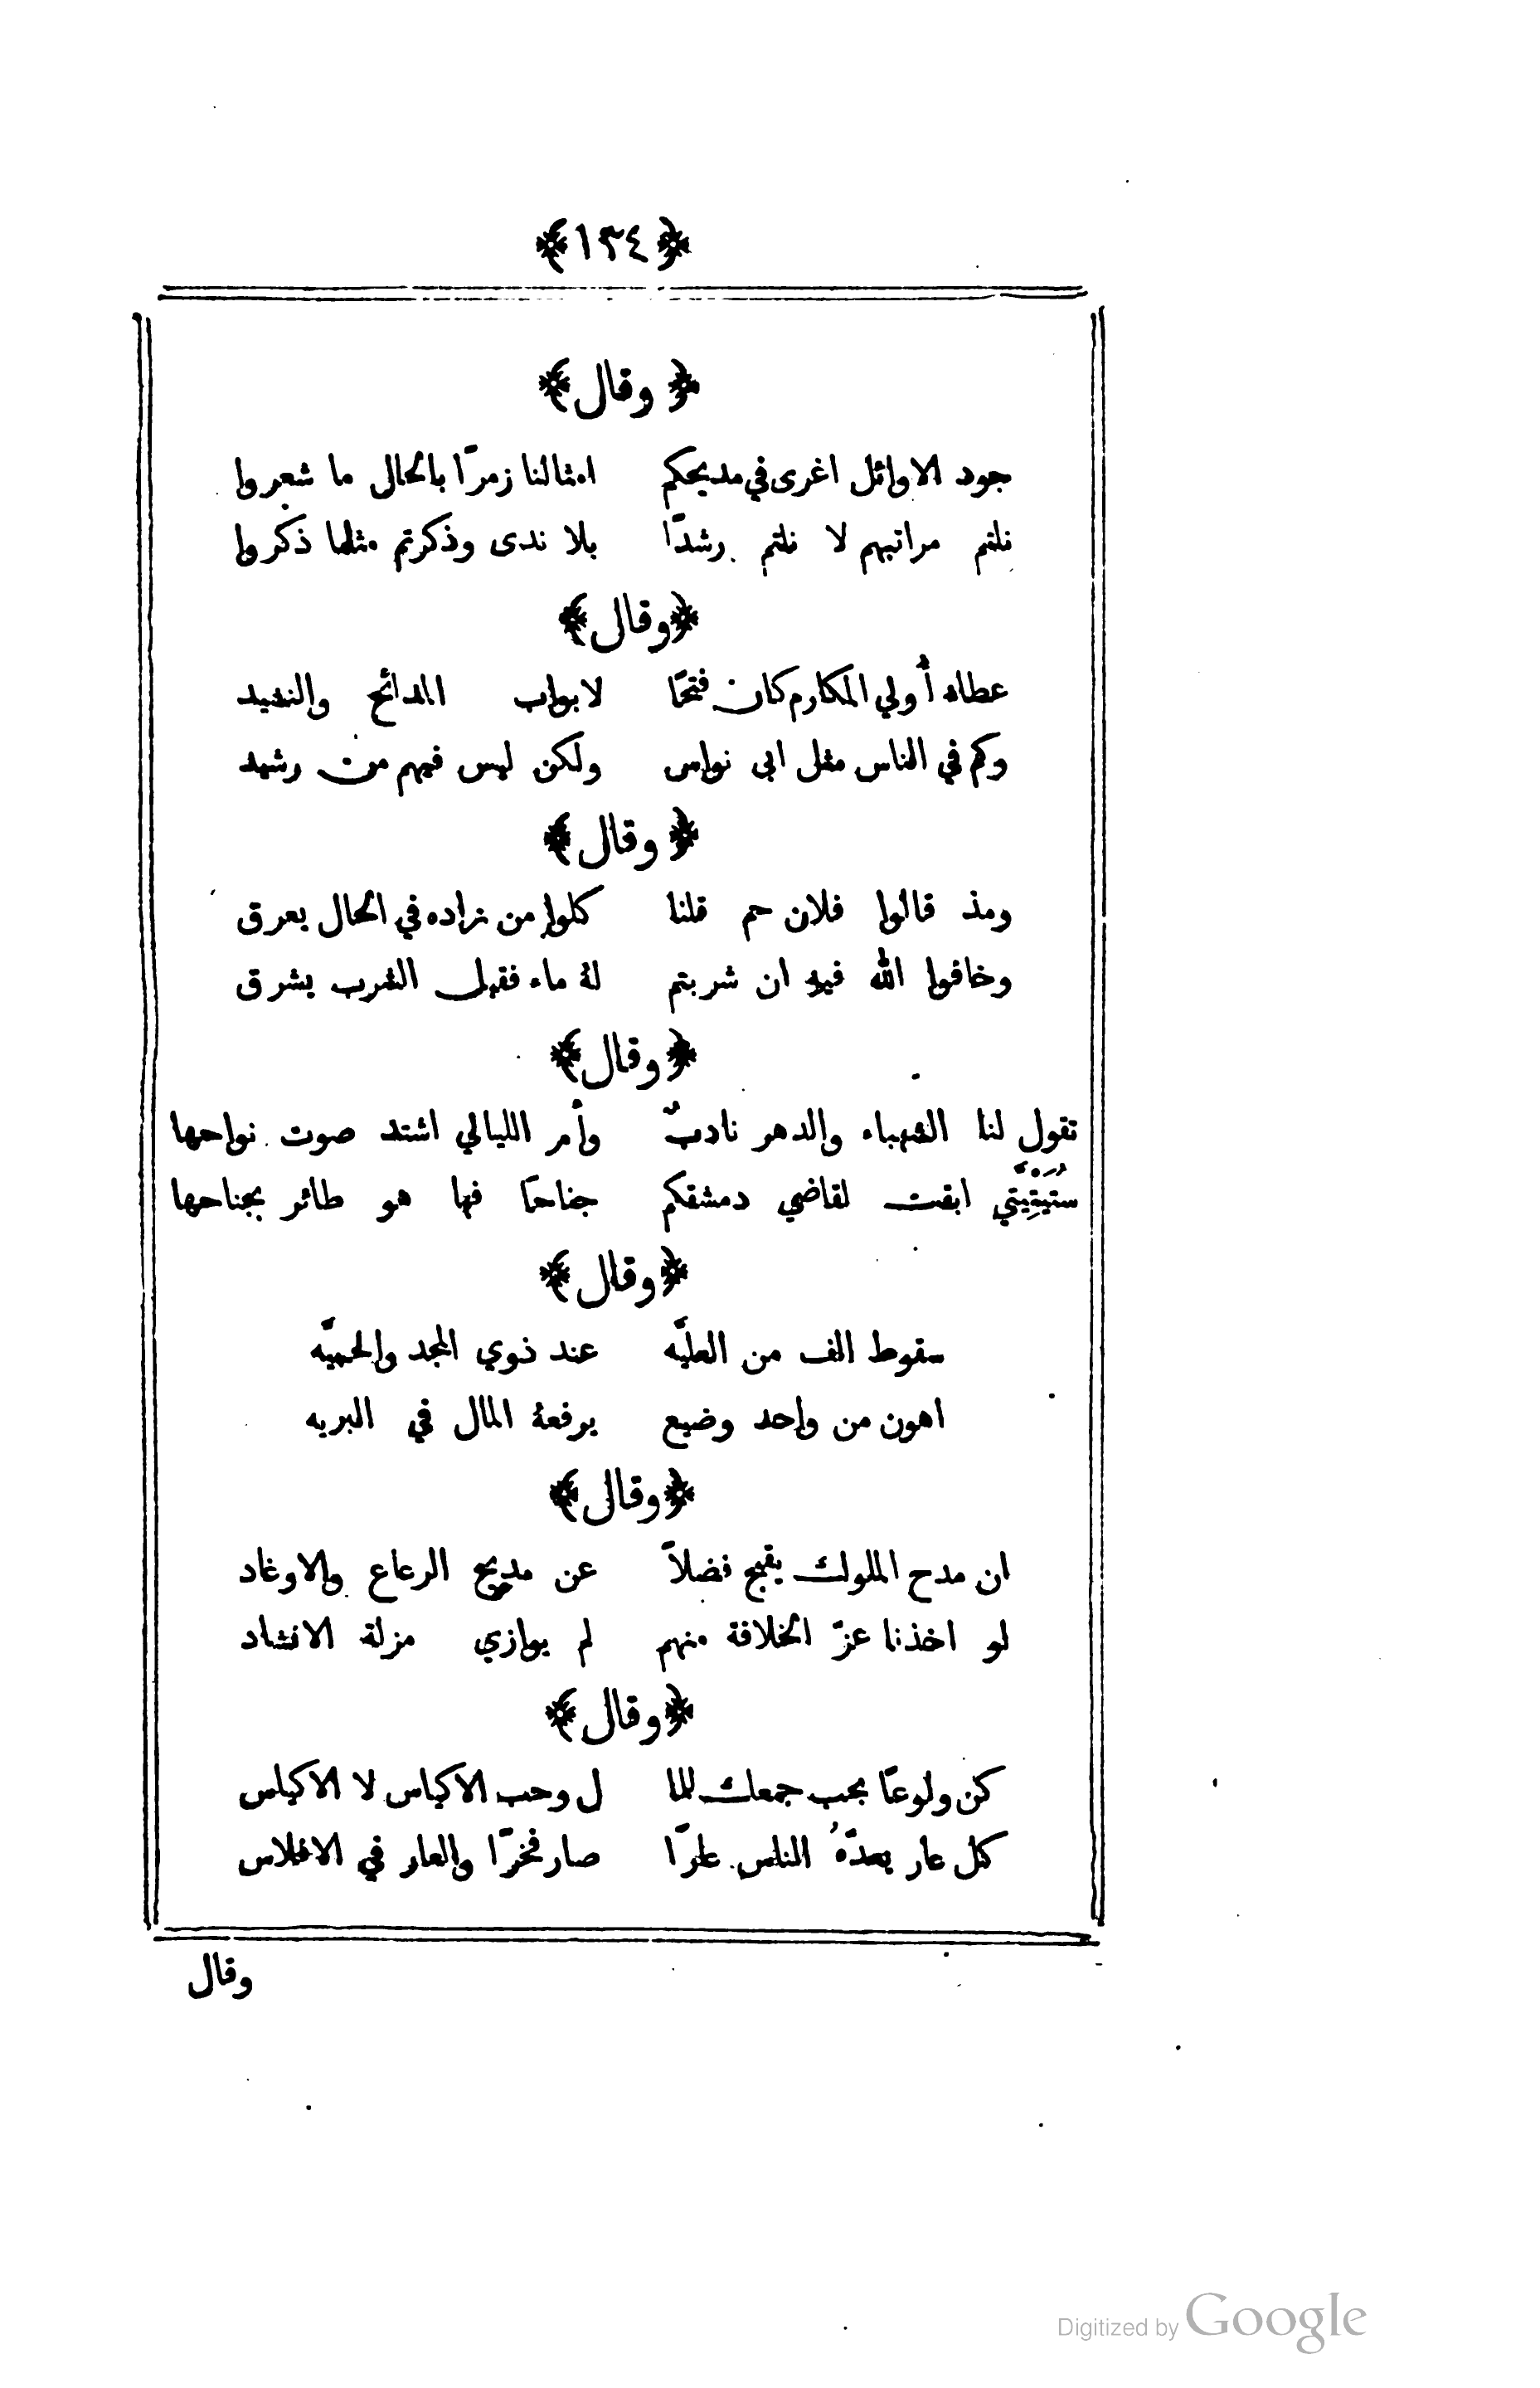 ﴿١٣٤﴾
﴿ وقال ﴾
جود الاوائل اغرى في مديحكم امثالنا زمرًا بالحال ما شعروا
نلتم مراتبهم لا نلتم رشدًا بلا ندى وذكرتم مثلما ذكروا
﴿وقال﴾
عطاء أولي المكارم كان فتحًا لابواب المدائح والنشيد
وكم في الناس مثل ابي نواس ولكن ليس فيهم من رشيد
﴿ وقال ﴾
ومذ قالوا فلان حم قلنا كلوا من زاده في الحال يعرق
وخافوا الله فيه ان شربتم لهُ ماء فقبل الشرب يشرق
﴿وقال﴾
تقول لنا الشهباء والدهر نادبٌ وأمر الليالي اشتد صوت نواحها
سُتَيْتِيَتي ابقت لقاضي دمشقكم جناحًا فها هو طائر بجناحها
﴿وقال﴾
سقوط الف من العليَّه عند ذوي المجد والحميَّه
اهون من واحد وضيع يرفعهُ المال في البريه
﴿وقال﴾
ان مدح الملوك يقبح فضلاً عن مديح الرعاع والاوغاد
لو اخذنا عزّ الخلافة منهم لم يوازي مزلة الانشاد
﴿وقال﴾
كن ولوعًا بحب جمعك للما ل وحب الاكياس لا الاكياس
كل عار يعدّهُ الناس عارًا صار فخرًا والعار في الافلاس
وقال
Digitized by Google